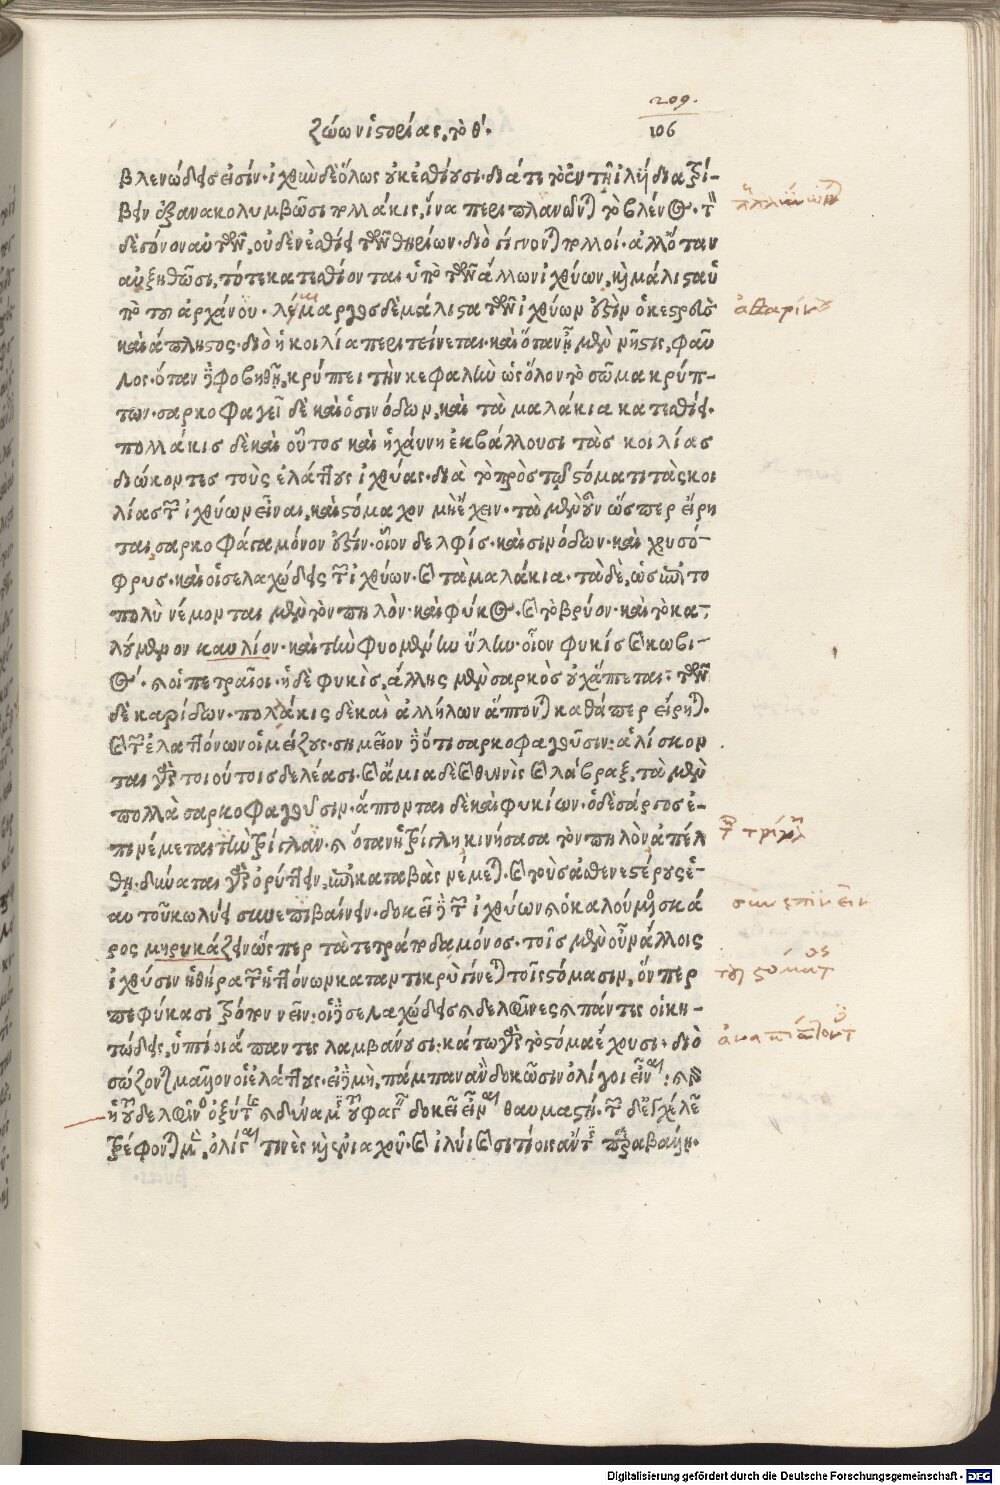 209.
106
ζώων ἱστορίας, τὸ θ΄.
βλενώδης εἰσίν· ἰχθὺν δὲ ὅλως οὐκ ἐσθίουσι· διά τε τὸ ἐν τῇ ἰλύϊ διατρί-
βειν ἐξανακολυμβῶσι πολλάκις, ἵνα περιπλανῶνται τὸ βλένος·
δὲ γόνον αὐτῶν, οὐδὲν ἐσθίει τῶν θηρίων· διὸ γίγνονται πολλοί· ἀλλ' ὅταν
αὐξηθῶσι, τότε κατεσθίονται ὑπὸ τῶν ἄλλων ἰχθύων, καὶ μάλιστα ὑ
πὸ τοῦ ἀρχάνου· λαίμαργος δὲ μάλιστα τῶν ἰχθύων ἐστὶν ὁ κεστρεὺς
καὶ ἄπληστος· διὸ ἡ κοιλία περιτείνεται· καὶ ὅταν ᾖ μὴ νῆστις, φαῦ
λος· ὅταν φοβηθῇ, κρύπτει τὴν κεφαλὴν ὡς ὅλον τὸ σῶμα κρύπ-
των· σαρκοφαγεῖ δὲ καὶ ὁ σινόδων, καὶ τὰ μαλάκια κατεσθίει·
πολλάκις δὲ καὶ οὗτος καὶ ἡ χάννη ἐκβάλλουσι τὰς κοιλίας
διώκοντες τοὺς ἐλάττους ἰχθύας· διὰ τὸ πρὸς τῷ στόματι τὰς κοι
λίας τῶν ἰχθύων εἶναι, καὶ στόμαχον μὴ ἔχειν· τὰ μὲν οὖν ὥσπερ εἴρη
ται σαρκοφάγα μόνον ἐστίν· οἷον δελφίς· καὶ σινόδων· καὶ χρυσό-
φρυς· καὶ οἱ σελαχώδεις τῶν ἰχθύων· καὶ τὰ μαλάκια· τὰ δὲ, ὡς ἐπὶ τὸ
πολὺ νέμονται μὲν τὸν πηλὸν· καὶ φύκος· καὶ τὸ βρύον· καὶ τὸ κα-
λούμενον καυλίον· καὶ τὴν φυομένην ὕλην· οἷον φυκὶς καὶ κωβι-
ὸς· καὶ οἱ πετραῖοι· ἡ δὲ φυκὶς, ἄλλης μὲν σαρκὸς οὐχ ἅπτεται· τῶν
δὲ καρίδων· πολάκις δὲ καὶ ἀλλήλων ἅπτονται καθάπερ εἴρηται·
καὶ τῶν ἐλαττόνων οἱ μείζους· σημεῖον δὲ ὅτι σαρκοφαγοῦσιν· ἁλίσκον
ται γὰρ τοιούτοις δελέασι· καὶ ἄμια δὲ καὶ θυννὶς καὶ λάβραξ, τὰ μὲν
πολλὰ σαρκοφαγοῦσιν· ἅπτονται δὲ καὶ φυκίων· ὁ δὲ σάργος ἐ-
πινέμεται τὴν τρίγλαν· καὶ ὅταν ἡ τρίγλη κινήσασα τὸν πηλὸν ἀπέλ
θῃ· δύναται γὰρ ὀρύττειν, ἐπικαταβὰς νέμεται· καὶ τοὺς ἀσθενεστέρους ἑ-
αυτοῦ κωλύει συνεπιβαίνειν· δοκεῖ δὲ τῶν ἰχθύων ὁ καλούμενος σκά
ρος μηρυκάζειν ὥσπερ τὰ τετράποδα μόνος· τοῖς μὲν οὖν ἄλλοις
ἰχθύσιν ἡ θήρα τῶν ἡττόνων καταντικρὺ γίνεται τοῖς στόμασιν, ὅνπερ
πεφύκασι τρόπον νεῖν· οἱ δὲ σελαχώδεις καὶ δελφῖνες καὶ πάντες οἱ κη-
τώδεις, ὕπτιοι ἀναπίπτοντες λαμβάνουσι· κάτω γὰρ τὸ στόμα ἔχουσι· διὸ
σώζονται μᾶλλον οἱ ἐλάττους· εἰ δὲ μὴ, πάμπαν ἂν δοκῶσιν ὀλίγοι εἶναι·
ἡ τοῦ δελφῖνος ὀξύτης καὶ δύναμις τοῦ φαγεῖν δοκεῖ εἶναι θαυμαστή· τῶν δὲ ἐγχέλεων
τρέφονται μὲν, ὀλίγαι τινὲς καὶ ἐνιαχοῦ· καὶ ἰλύϊ καὶ σιτίοις ἄν τις παραβάλῃ·
ἀθαρίνου
τῶν τρίγλαν
συνεπινεῖν
τοῦ σώματος
ἀναπίπτοντ